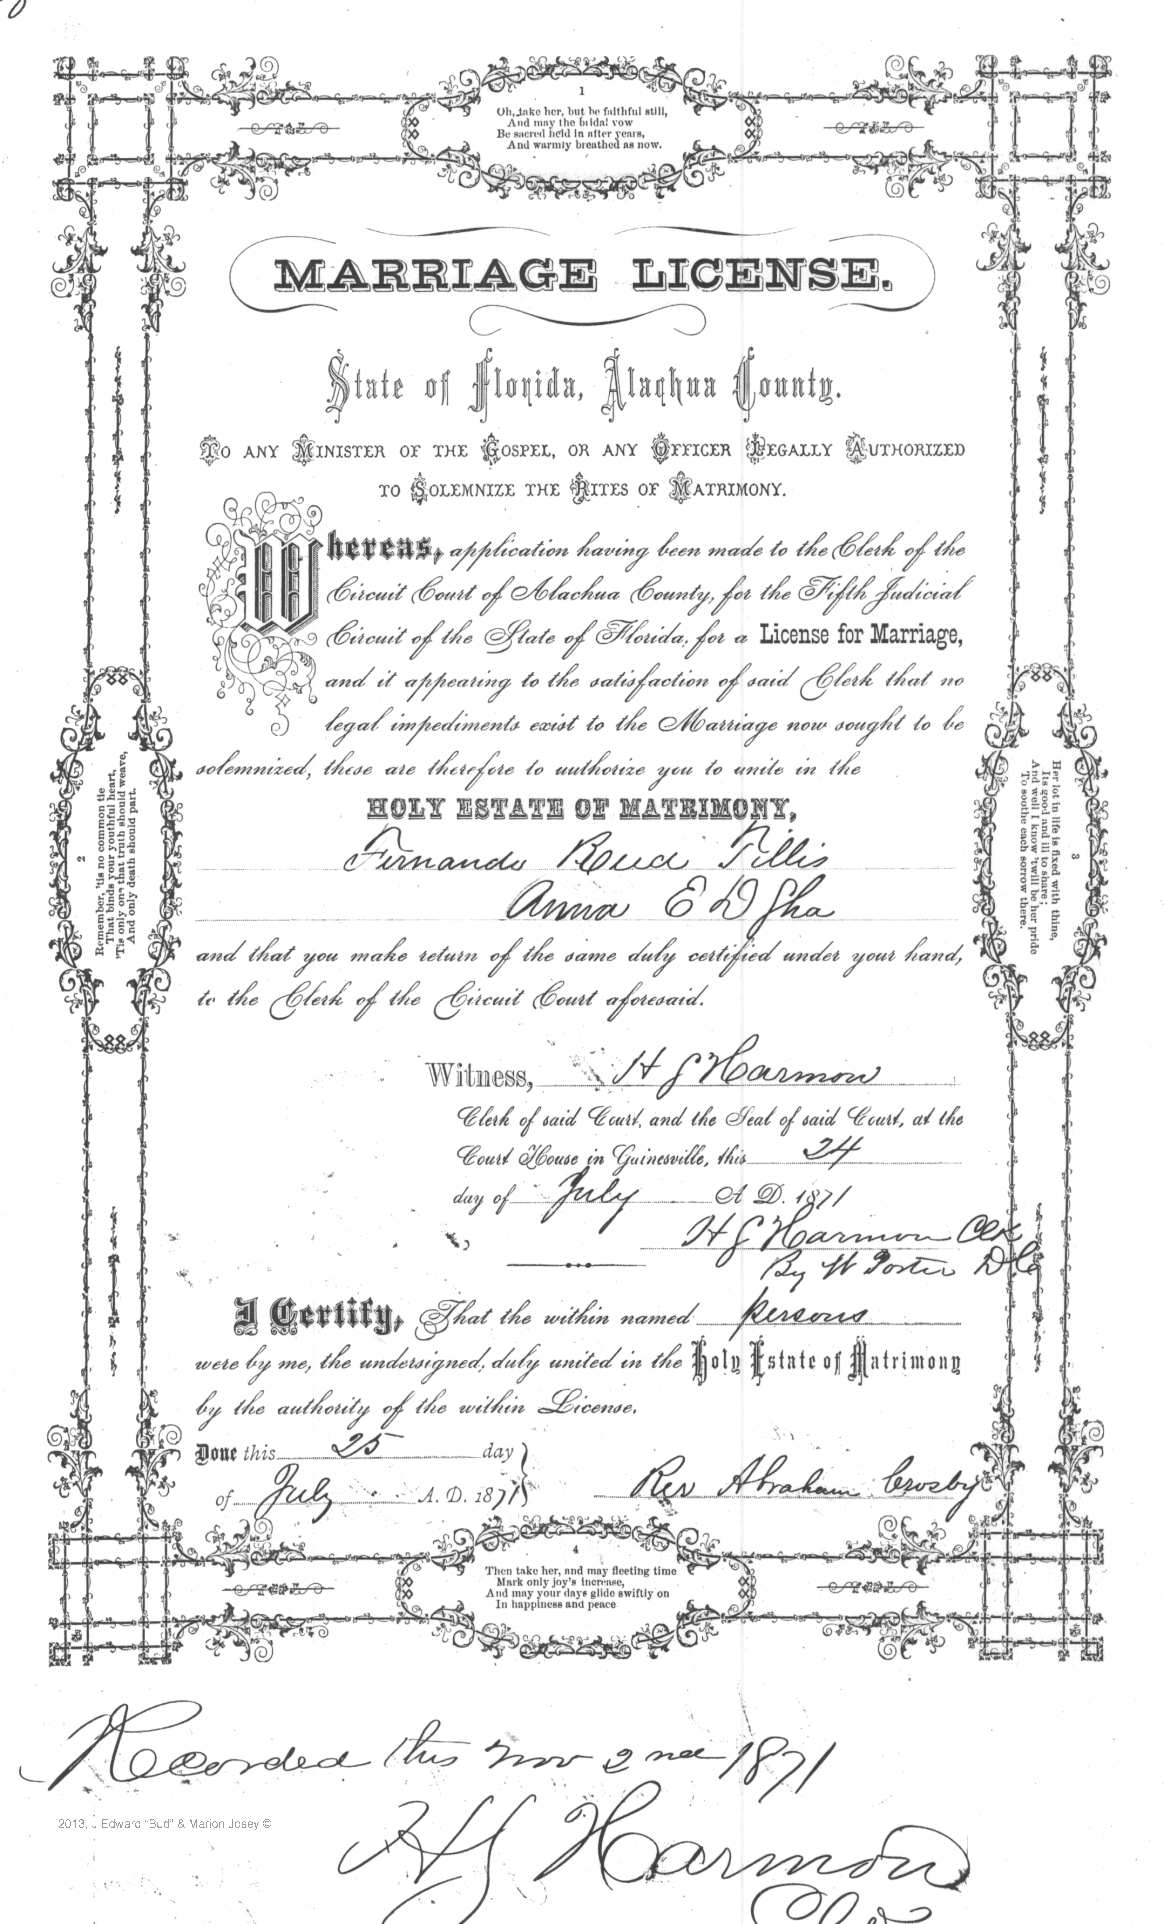 1
Oh, take her, but be faithful still,
And may the bridal vow
Be sacred held in after years,
And warmly breathed as now.
MARRIAGE LICENSE.
State of Florida, Alachua County.
TO ANY MINISTER OF THE GOSPEL, OR ANY OFFICER LEGALLY AUTHORIZED
TO SOLEMNIZE THE RITES OF MATRIMONY.
Whereas, application having been made to the Clerk of the
Circuit Court of Alachua County, for the Fifth Judicial
Circuit of the State of Florida, for a License for Marriage,
and it appearing to the satisfaction of said Clerk that no
legal impediments exist to the Marriage now sought to be
solemnized, these are therefore to authorize you to unite in the
HOLY ESTATE OF MATRIMONY,
Fernando Tillis
Anna E D
and that you make return of the same duly certified under your hand,
to the Clerk of the Circuit Court aforesaid.
Witness, H J Harmon
Clerk of said Court, and the Seal of said Court, at the
Court House in Gainesville, this 24
day of July A. D. 1871
H J Harmon Clk
By W Porter D C
I Certify, That the within named persons
were by me, the undersigned, duly united in the Holy Estate of Matrimony
by the authority of the within License.
Done this 25 day
of July A. D. 1871
Rev Abraham Crosby
2
Remember, 'tis no common tie
That binds your youthful heart,
'Tis only one that truth should weave,
And only death should part.
3
Her lot in life is fixed with thine,
Its good and ill to share;
And well I know 'twill be her pride
To soothe each sorrow there.
4
Then take her, and may fleeting time
Mark only joy's increase,
And may your days glide swiftly on
In happiness and peace
Recorded this Nov 2nd 1871
H J Harmon
Clk
2013, J Edward "Bud" & Marion Josey ©